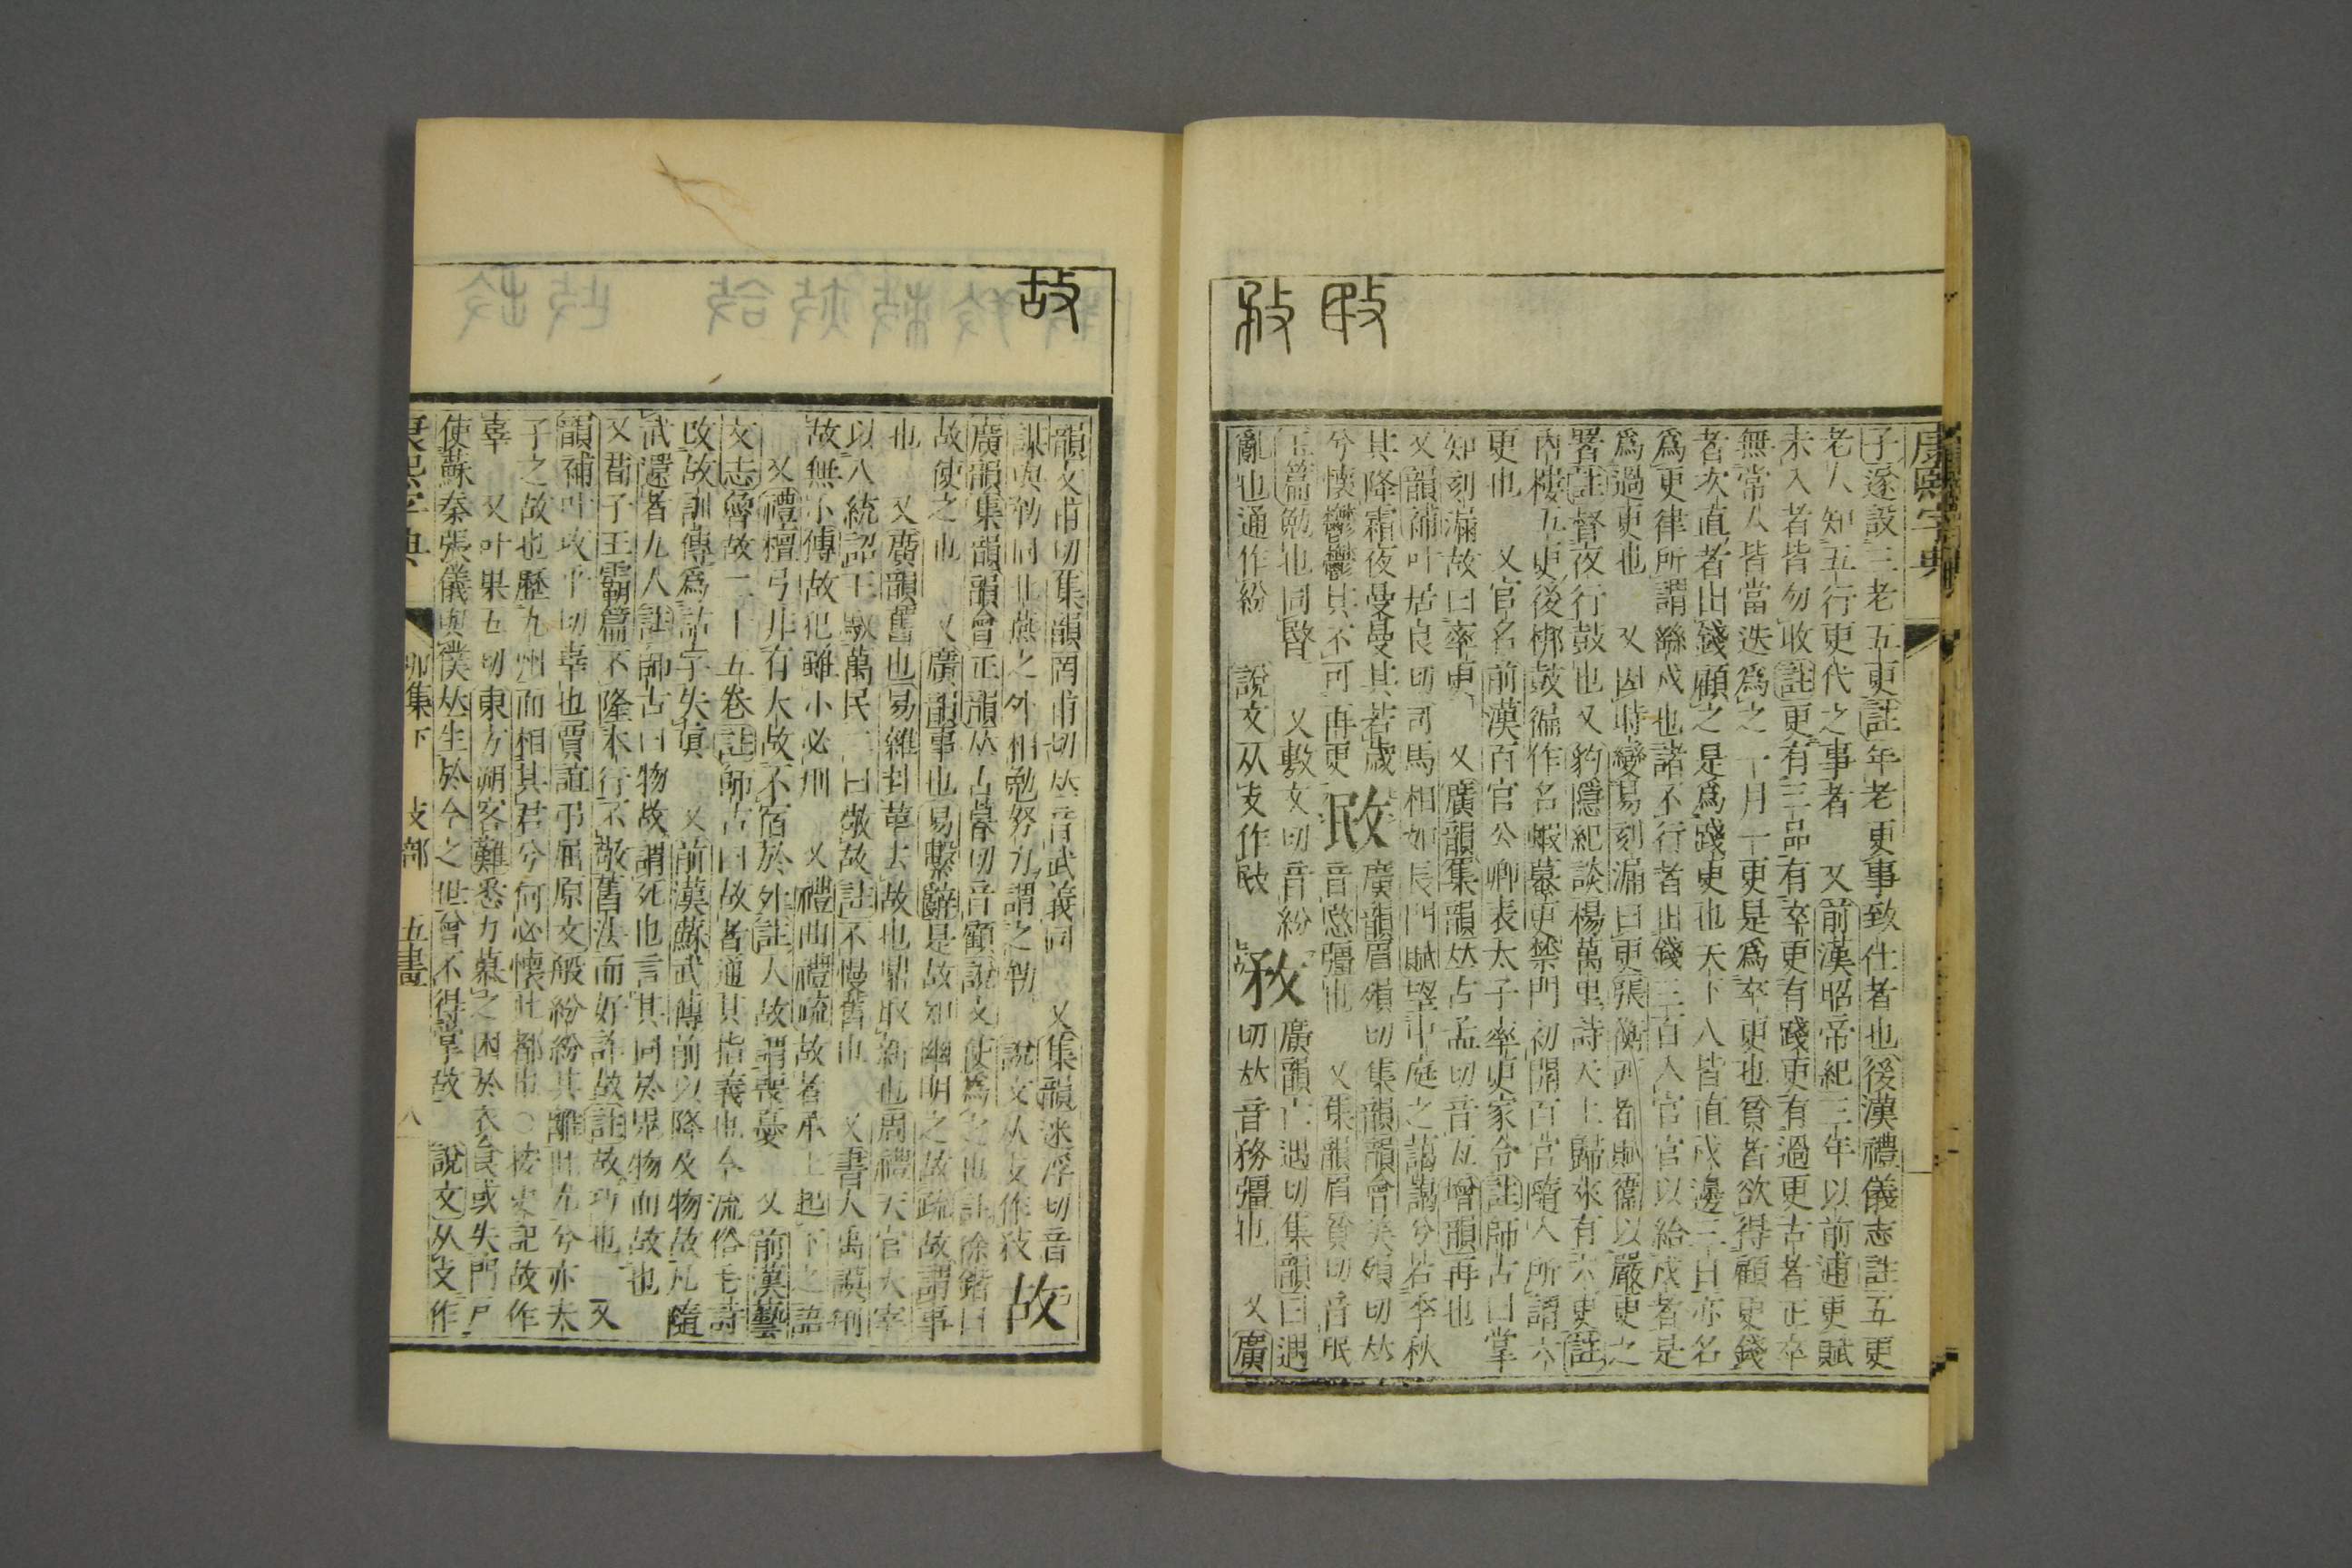 康熙字典
子遂設三老五更註年老更事致仕者也後漢禮儀志註五更
老人知五行更代之事者 又前漢昭帝紀三年以前逋更賦
未入者皆勿收註更有三品有卒更有踐更有過更古者正卒
無常人皆當迭爲之一月一更是爲卒更也貧者欲得顧更錢
者次直者出錢顧之是爲踐更也天下人皆直戍邊三日亦名
爲更律所謂繇戍也諸不行者出錢三百入官官以給戍者是
爲過更也 又因時變易刻漏曰更張衡西都賦衞以嚴更之
署註督夜行鼓也又豹隱紀談楊萬里詩天上歸來有六更註
內樓五更後梆鼓徧作名蝦蟇更禁門初開百官隨入所謂六
更也 又官名前漢百官公卿表太子率更家令註師古曰掌
知刻漏故曰率更 又廣韻集韻𠀤古孟切音亙增韻再也
又韻補叶居良切司馬相如長門賦望中庭之藹藹兮若季秋
其降霜夜曼曼其若歲
兮懷鬱鬱其不可再更
敃
廣韻眉殞切集韻韻會美殞切𠀤
音愍彊也 又集韻眉貧切音珉
玉篇勉也同暋 又敷文切音紛
亂也通作紛 說文从攴作敃
敄
廣韻亡遇切集韻曰遇
切𠀤音務彊也 又廣
韻文甫切集韻罔甫切𠀤音武義同 又集韻迷浮切音
謀與勄同北燕之外相勉努力謂之勄 說文从攴作敄
故
廣韻集韻韻會正韻𠀤古暮切音顧說文使爲之也註徐鍇曰
故使之也 又廣韻事也易繫辭是故知幽明之故疏故謂事
也 又廣韻舊也易雜卦革去故也鼎取新也周禮天官大宰
以八統詔王馭萬民二曰敬故註不慢舊也 又書大禹謨刑
故無小傳故犯雖小必刑 又禮曲禮疏故者承上起下之語
又禮檀弓非有大故不宿於外註大故謂喪憂 又前漢藝
文志魯故二十五卷註師古曰故者通其指義也今流俗毛詩
改故訓傳爲詁字失眞 又前漢蘇武傳前以降及物故凡隨
武還者九人註師古曰物故謂死也言其同於鬼物而故也
又荀子王霸篇不隆本行不敬舊法而好詐故註故巧也 又
韻補叶攻乎切辜也賈誼弔屈原文般紛紛其離此尤兮亦夫
子之故也歷九州而相其君兮何必懷此都也○按史記故作
辜 又叶果五切東方朔客難悉力慕之困於衣食或失門戶
使蘇秦張儀與僕𠀤生於今之世曾不得掌故 說文从攴作
康熙字典 卯集下 攴部 五畫 八